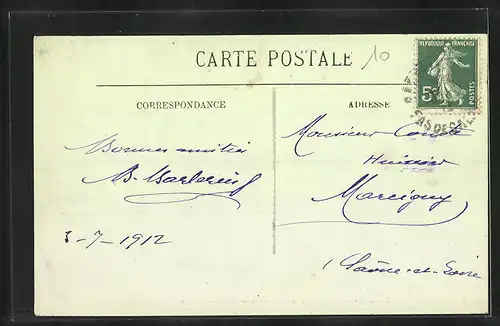 CARTE POSTALE
10
REPUBLIQUE FRANÇAISE
5c
POSTES
PAS DE CAL
CORRESPONDANCE
ADRESSE
Bonnes amitiés
B.
3-7-1912
Monsieur Comte
Huissier
Marcigny
Saône-et-Loire